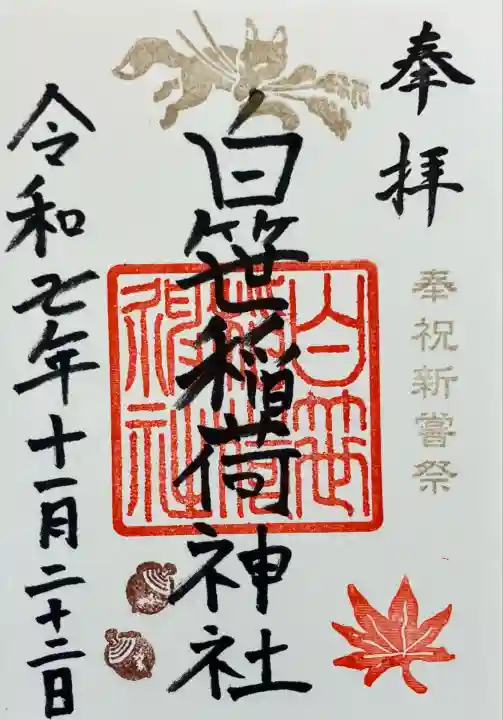 奉拝
奉祝新嘗祭
白笹稲荷神社
白笹
稲荷
神社
令和七年十一月二十二日